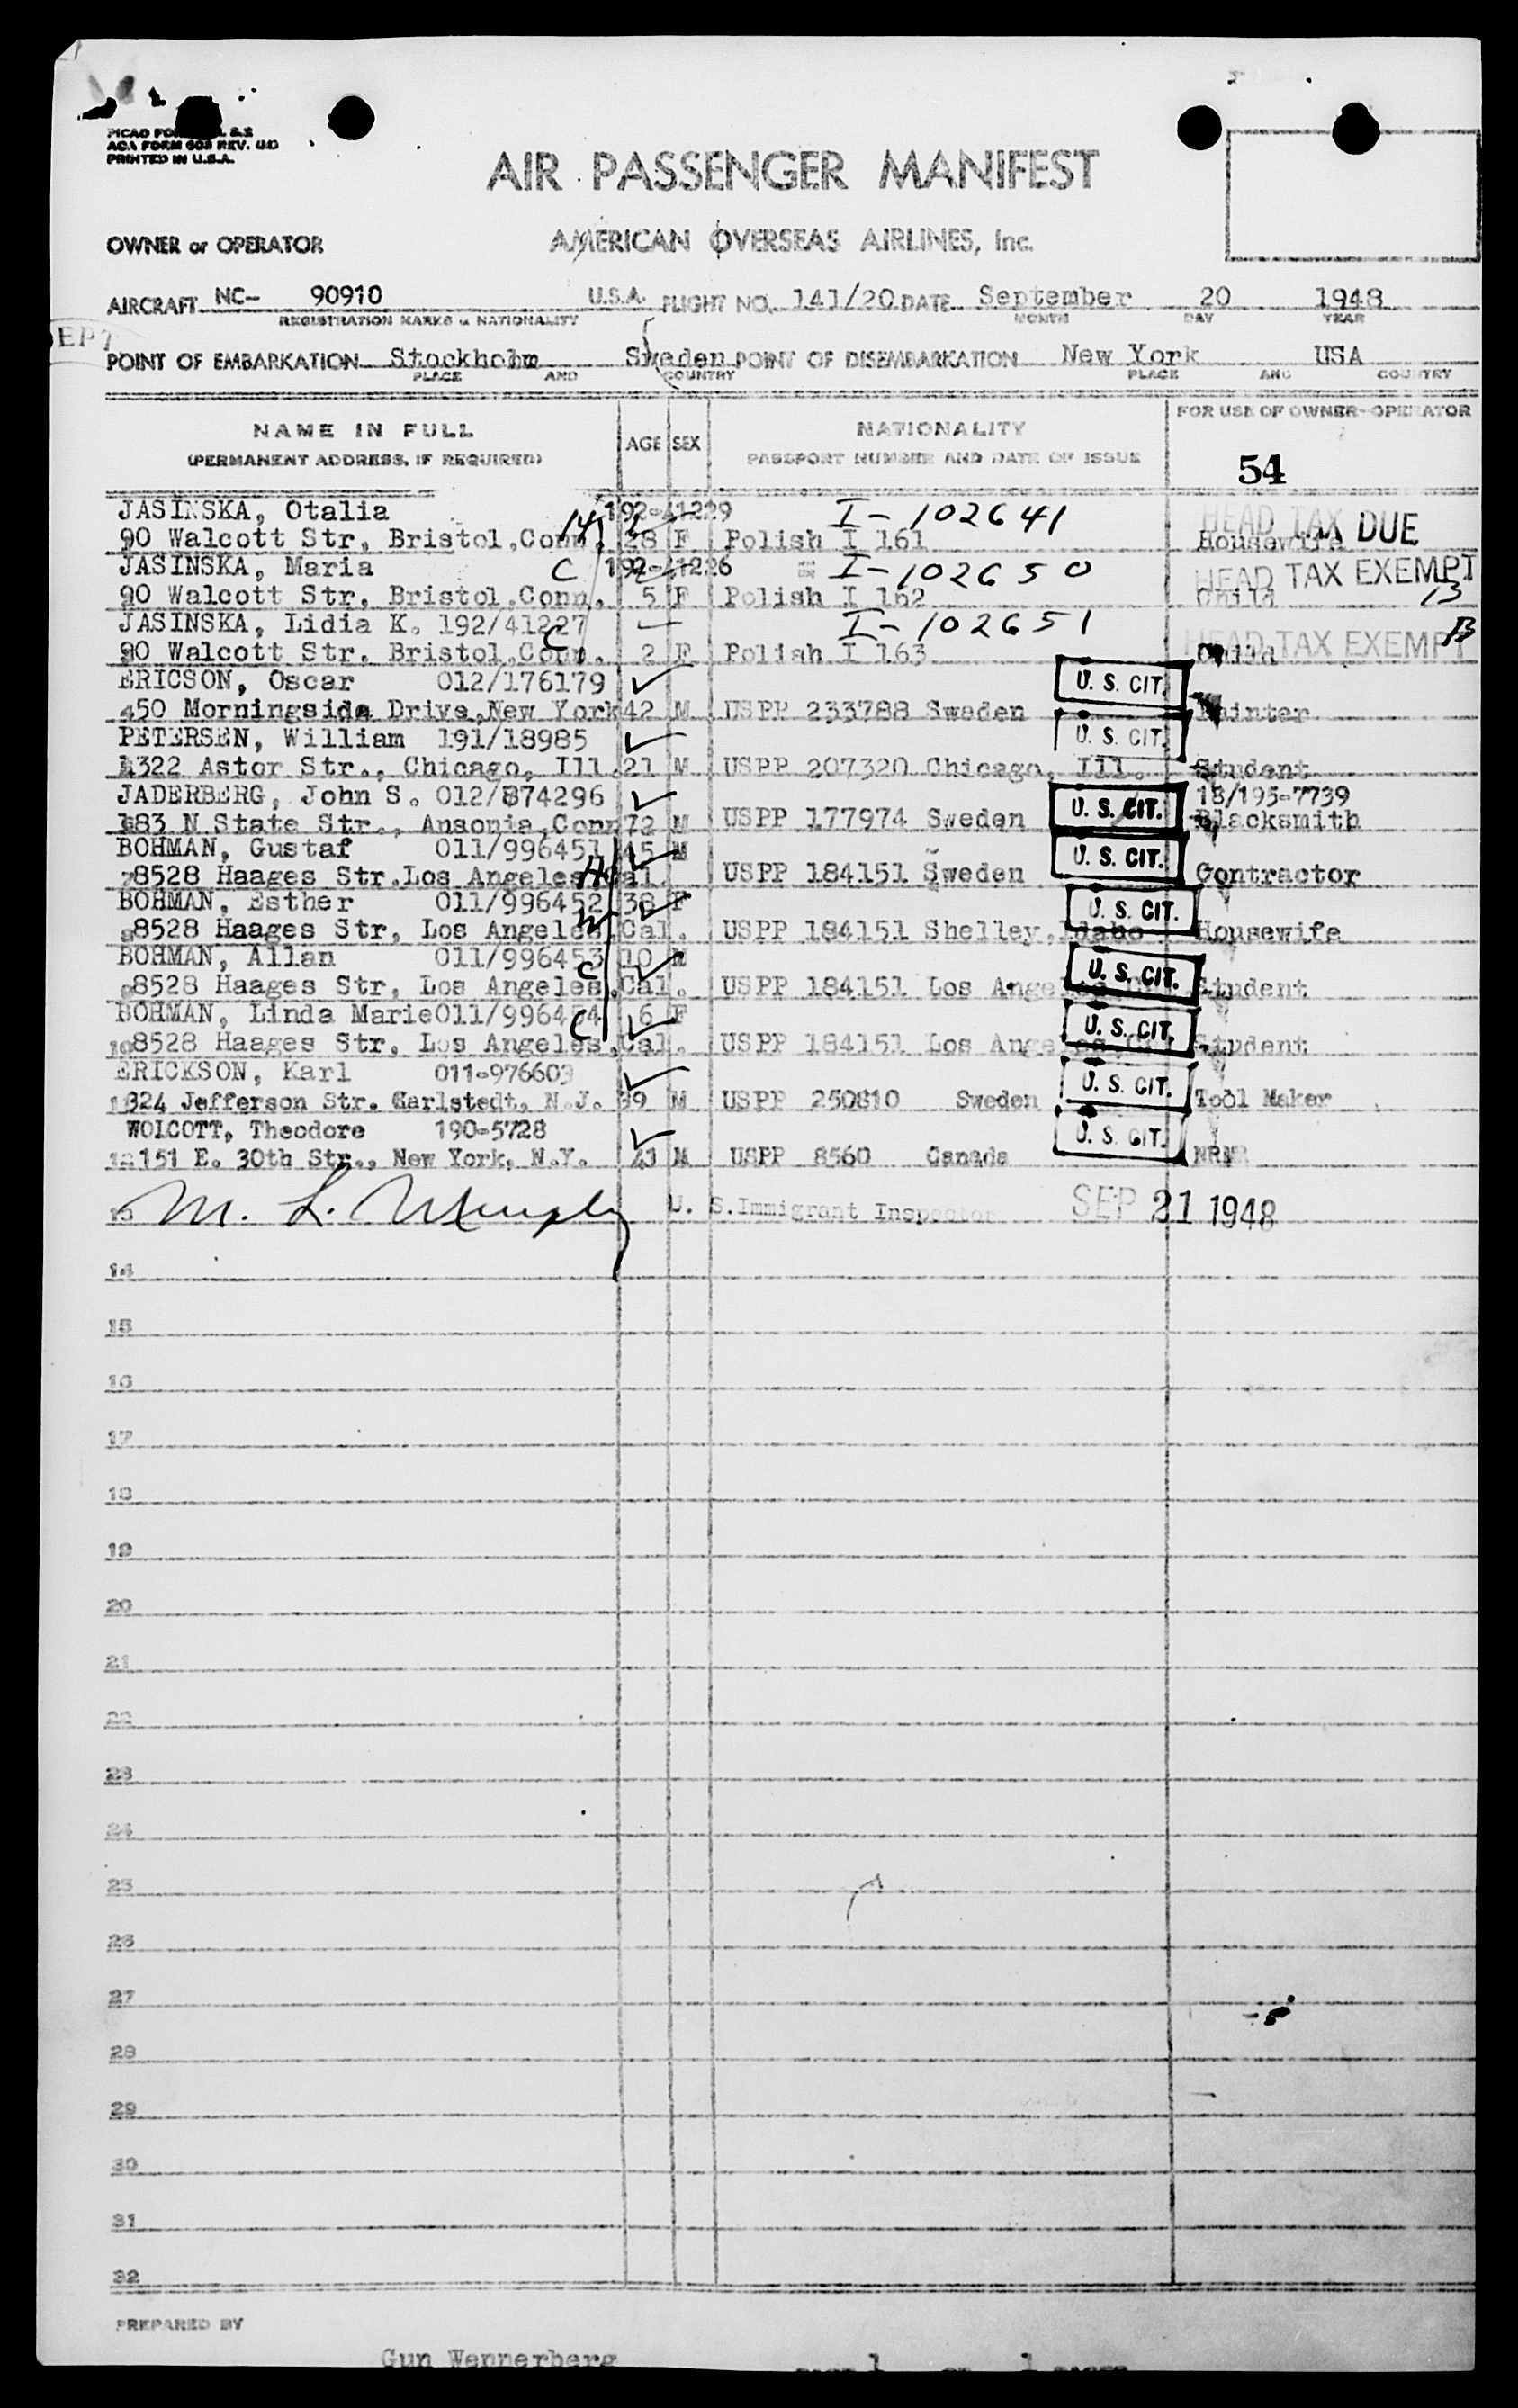 ACA FORM 603 REV.
PRINTED IN U.S.A.
AIR PASSENGER MANIFEST
OWNER or OPERATOR AMERICAN OVERSEAS AIRLINES, Inc.
AIRCRAFT NC- 90910 U.S.A. FLIGHT NO. 141/20 DATE September 20 1948
REGISTRATION MARKS & NATIONALITY MONTH DAY YEAR
POINT OF EMBARKATION Stockholm Sweden POINT OF DISEMBARKATION New York USA
PLACE AND COUNTRY PLACE AND COUNTRY
NAME IN FULL AGE SEX NATIONALITY FOR USE OF OWNER-OPERATOR
(PERMANENT ADDRESS, IF REQUIRED) PASSPORT NUMBER AND DATE OF ISSUE 54
JASINSKA, Otalia 192-41229 I-102641 HEAD TAX DUE
90 Walcott Str, Bristol, Conn. 28 F Polish I 161 Housewife
JASINSKA, Maria C 192-41226 I-102650 HEAD TAX EXEMPT
90 Walcott Str, Bristol, Conn. 5 F Polish I 162 Child 13
JASINSKA, Lidia K. 192/41227 C I-102651
90 Walcott Str. Bristol, Conn. 2 F Polish I 163 Child HEAD TAX EXEMPT
ERICSON, Oscar 012/176179 U. S. CIT.
450 Morningside Drive, New York 42 M USPP 233788 Sweden Painter
PETERSEN, William 191/18985 U. S. CIT.
1322 Astor Str., Chicago, Ill. 21 M USPP 207320 Chicago, Ill. Student
JADERBERG, John S. 012/874296 U. S. CIT. 18/195-7739
183 N State Str., Ansonia, Conn 72 M USPP 177974 Sweden Blacksmith
BOHMAN, Gustaf 011/996451 45 M U. S. CIT.
8528 Haages Str. Los Angeles Cal. H USPP 184151 Sweden Contractor
BOHMAN, Esther 011/996452 38 F U. S. CIT.
8528 Haages Str, Los Angeles Cal. W USPP 184151 Shelley, Idaho Housewife
BOHMAN, Allan 011/996453 10 M U. S. CIT.
8528 Haages Str, Los Angeles, Cal. C USPP 184151 Los Angeles Student
BOHMAN, Linda Marie 011/996454 C 6 F U. S. CIT.
10 8528 Haages Str, Los Angeles, Cal. USPP 184151 Los Angeles Student
ERICKSON, Karl 011-976603 U. S. CIT.
324 Jefferson Str. Carlstedt, N.J. 39 M USPP 250810 Sweden Tool Maker
WOLCOTT, Theodore 190-5728 U. S. CIT.
12 151 E. 30th Str., New York, N.Y. M USPP 8560 Canada
13 M. L. U. S. Immigrant Inspector SEP 21 1948
14
15
16
17
18
19
20
21
22
23
24
25
26
27
28
29
30
31
32
PREPARED BY
Gun Wennerberg